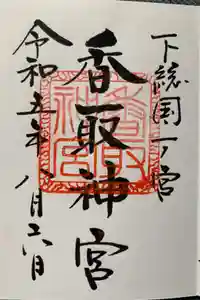 下総国一ノ宮
香取神宮
香取神宮
令和五年八月六日